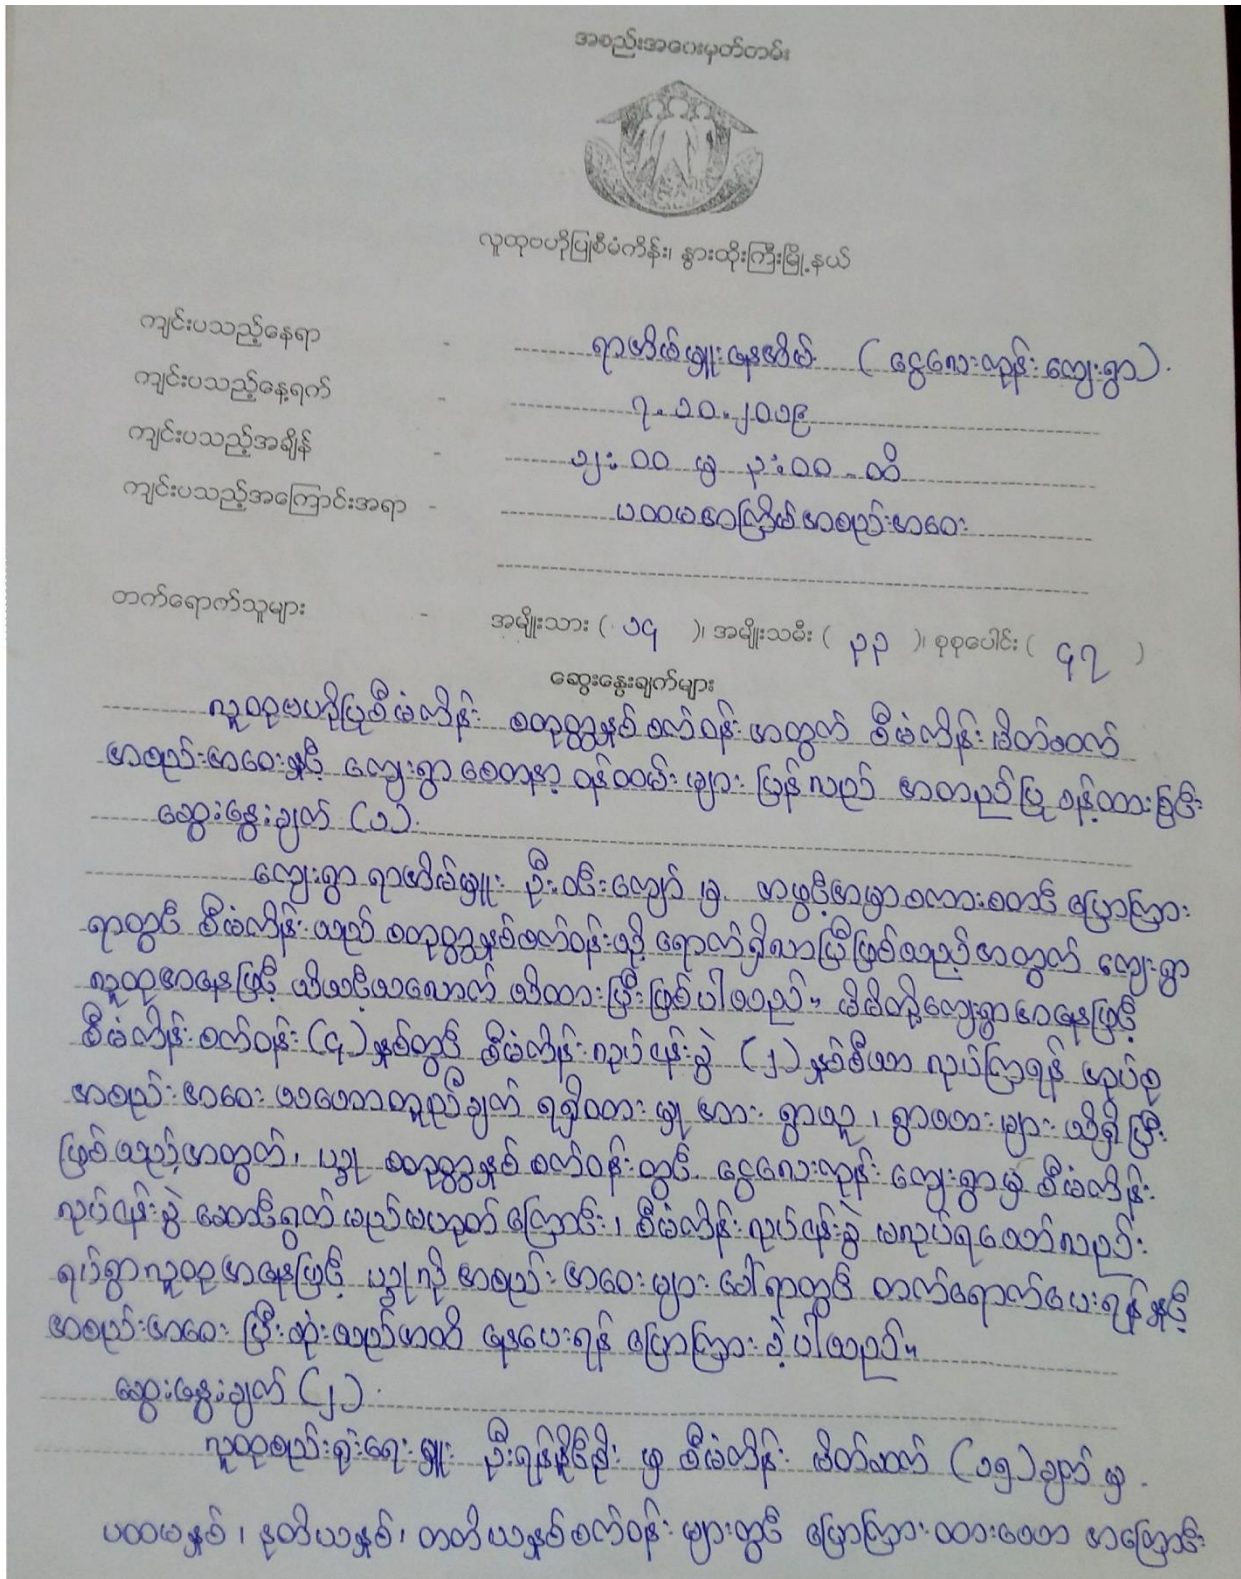 အစည်းအဝေးမှတ်တမ်း
လူထုဗဟိုပြုစီမံကိန်း၊ နွားထိုးကြီးမြို့နယ်
ကျင်းပသည့်နေရာ - ရာအိမ်မှူးနေအိမ် (ငွေလေးကုန်းကျေးရွာ).
ကျင်းပသည့်နေ့ရက် - ၇.၁၀.၂၀၁၉
ကျင်းပသည့်အချိန် - ၁၂:၀၀ မှ ၃:၀၀ ထိ
ကျင်းပသည့်အကြောင်းအရာ - ပထမအကြိမ်အစည်းအဝေး
တက်ရောက်သူများ - အမျိုးသား ( ၁၄ )၊ အမျိုးသမီး ( ၃၃ )၊ စုစုပေါင်း ( ၄၇ )
ဆွေးနွေးချက်များ
လူထုဗဟိုပြုစီမံကိန်း စတုတ္ထနှစ်စက်ဝန်းအတွက် စီမံကိန်းမိတ်ဆက်
အစည်းအဝေးနှင့် ကျေးရွာစေတနာ့ဝန်ထမ်းများ ပြန်လည် အတည်ပြု ခန့်ထားခြင်း
ဆွေးနွေးချက် (၁).
ကျေးရွာ ရာအိမ်မှူး ဦးဝင်းကျော် မှ အဖွင့်အမှာစကားစတင် ပြောကြား
ရာတွင် စီမံကိန်းသည် စတုတ္ထနှစ်စက်ဝန်းသို့ ရောက်ရှိလာပြီဖြစ်သည့်အတွက် ကျေးရွာ
လူထုအနေဖြင့် သိသင့်သလောက် သိထားပြီးဖြစ်ပါသည်။ မိမိတို့ကျေးရွာအနေဖြင့်
စီမံကိန်းစက်ဝန်း (၄) နှစ်တွင် စီမံကိန်းလုပ်ငန်းခွဲ (၂) နှစ်စီသာ လုပ်ကြရန် အုပ်စု
အစည်းအဝေး သဘောတူညီချက် ရရှိထားမှုအား ရွာသူ၊ ရွာသားများ သိရှိပြီး
ဖြစ်သည့်အတွက်၊ ယခု စတုတ္ထနှစ်စက်ဝန်းတွင် ငွေလေးကုန်း ကျေးရွာမှ စီမံကိန်း
လုပ်ငန်းခွဲ ဆောင်ရွက်မည်မဟုတ်ကြောင်း၊ စီမံကိန်းလုပ်ငန်းခွဲ မလုပ်ရသော်လည်း
ရပ်ရွာလူထုအနေဖြင့် ယခုလို အစည်းအဝေးများ ခေါ်ရာတွင် တက်ရောက်ပေးရန်နှင့်
အစည်းအဝေး ပြီးဆုံးသည်အထိ နေပေးရန် ပြောကြားခဲ့ပါသည်။
ဆွေးနွေးချက် (၂).
လူထုစည်းရုံးရေးမှူး ဦးရန်နိုင်စိုး မှ စီမံကိန်း မိတ်ဆက် (၁၅) ချက် မှ
ပထမနှစ်၊ ဒုတိယနှစ်၊ တတိယနှစ်စက်ဝန်းများတွင် ပြောကြားထားသော အကြောင်း